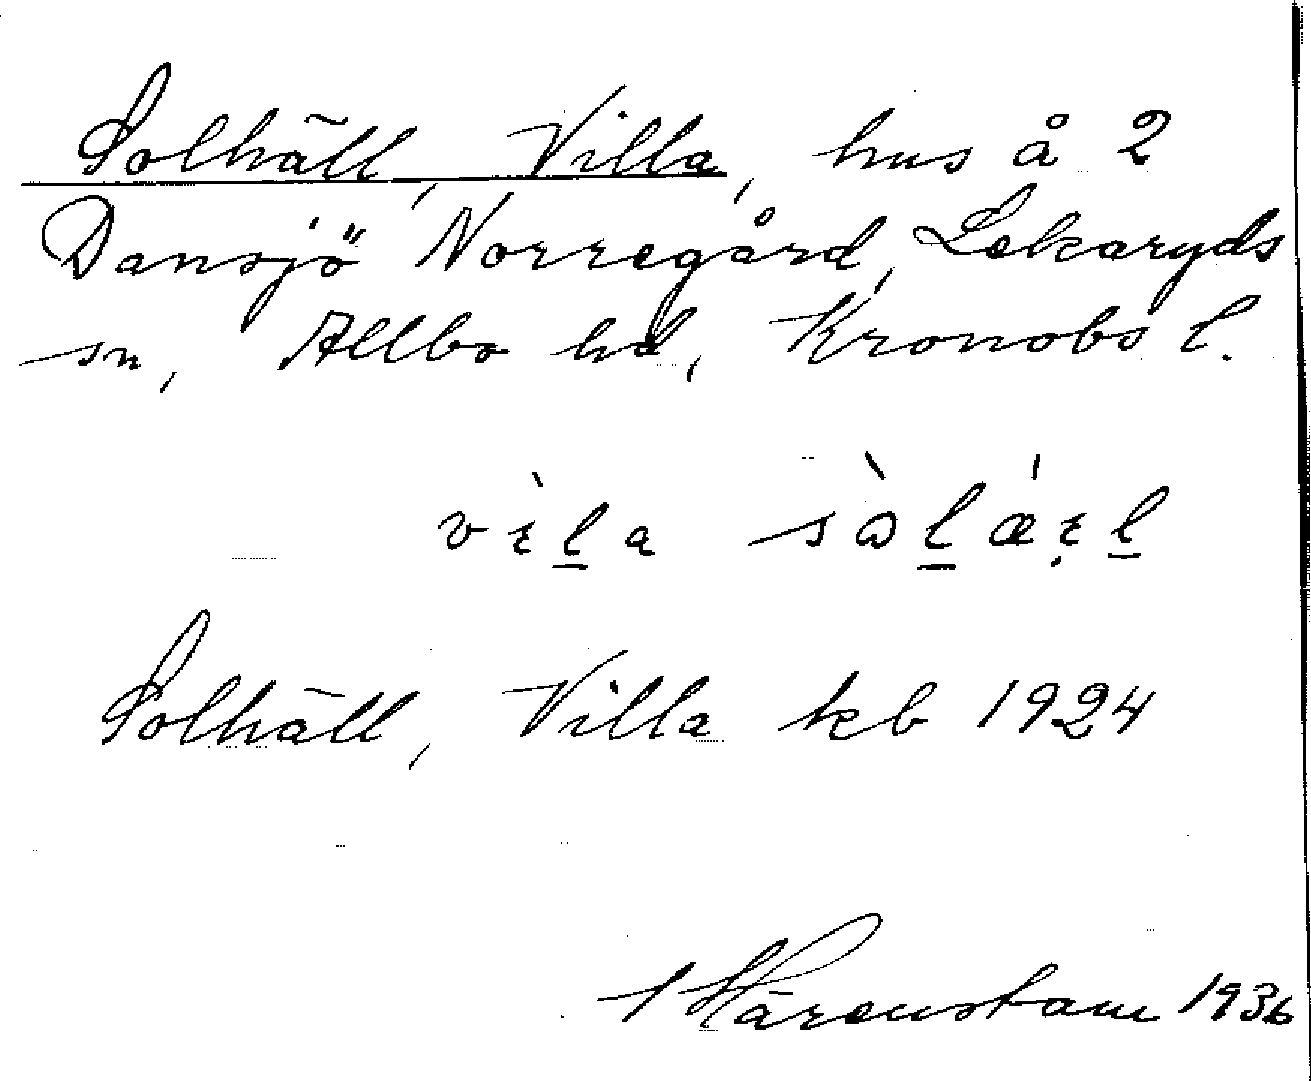 Solhäll, Villa, hus å 2
Dansjö Norregård, Lekaryds
sn, Allbo hd, Kronobs l.
Solhäll, Villa kb 1924
Härenstam 1936